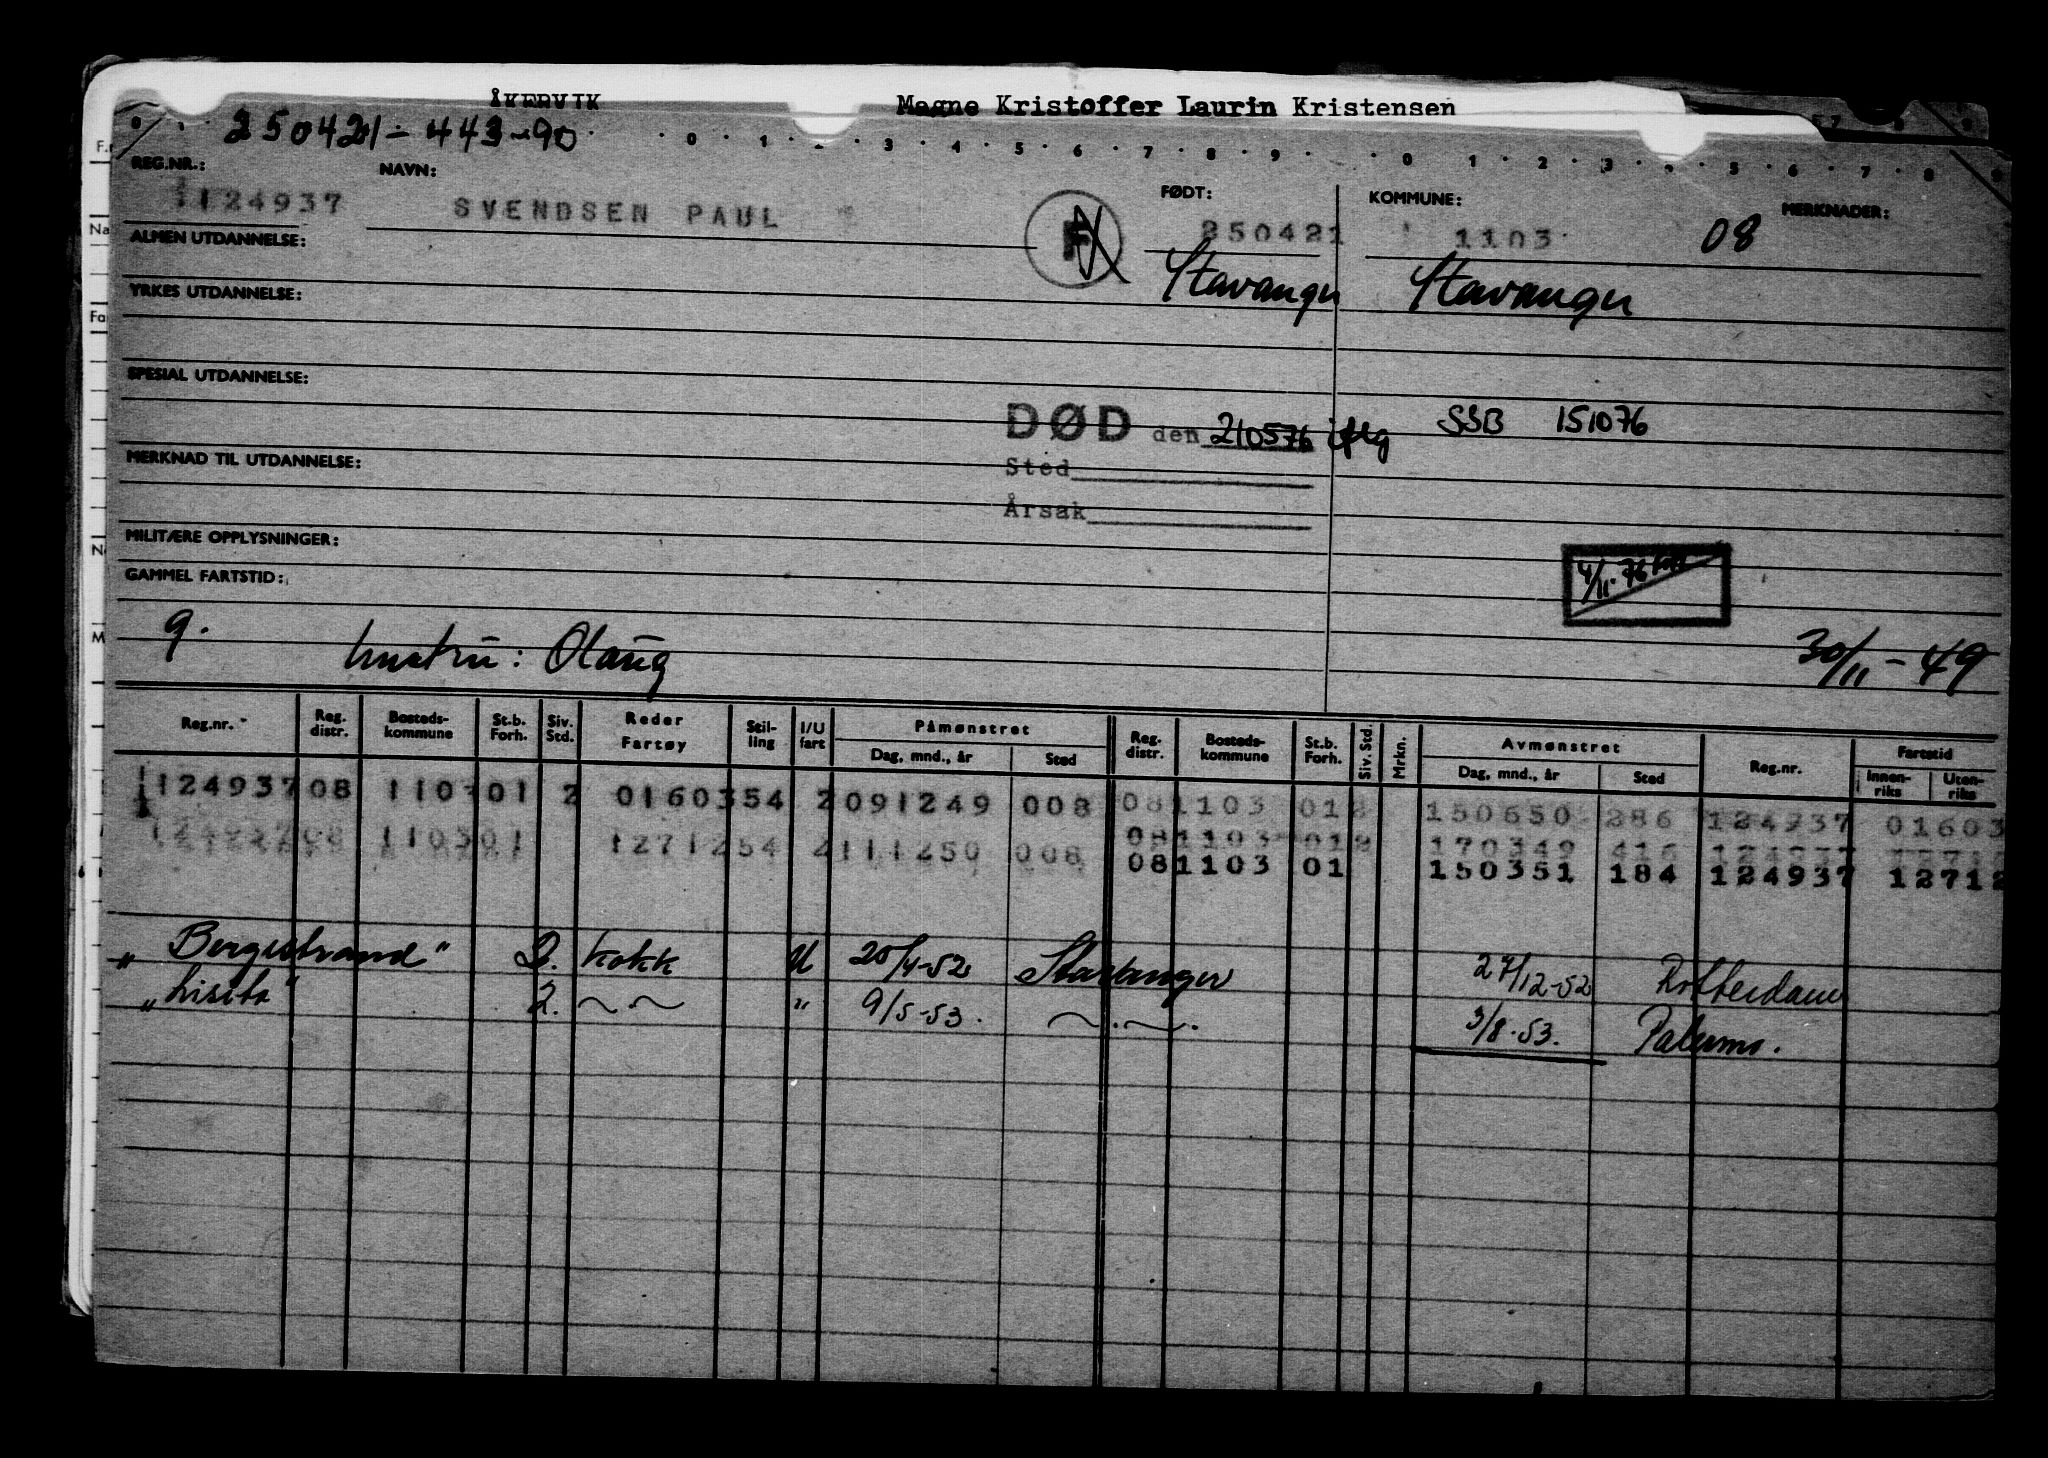 ÅKERVIK Magne Kristoffer Laurin Kristensen
250421-443-90
0 1 2 3 4 5 6 7 8 9 0 1 2 3 4 5 6 7 8 9
REG.NR.: NAVN: FØDT: KOMMUNE: MERKNADER:
124937 SVENDSEN PAUL F 250421 1103 08
ALMEN UTDANNELSE: Stavanger Stavanger
YRKES UTDANNELSE:
SPESIAL UTDANNELSE:
DØD den 210576 iflg SSB 151076
MERKNAD TIL UTDANNELSE: Sted
Årsak
MILITÆRE OPPLYSNINGER:
4/11-76
GAMMEL FARTSTID:
g. hustru: Olaug 30/11-49
Reg.nr. Reg. distr. Bosteds-kommune St.b. Forh. Siv. Std. Reder Fartøy Stil-ling I/U fart Påmønstret Dag, mnd., år Sted Reg. distr. Bosteds-kommune St.b. Forh. Siv. Std. Mrkn. Avmønstret Dag, mnd., år Sted Reg.nr. Fartstid Innen-riks Uten-riks
124937 08 110 01 2 01603 54 2 091249 008 08 1103 01 2 150650 286 124937 01603
124937 08 1103 01 12712 54 2 111250 008 08 1103 01 2 170349 416 124937
08 1103 01 150351 184 124937 12712
"Bergestrand" 2. kokk U 25/4-52 Stavanger 27/12-52 Rotterdam
"Lisita" 2. ~.~ " 9/5-53. ~.~. 3/8-53. Palermo.